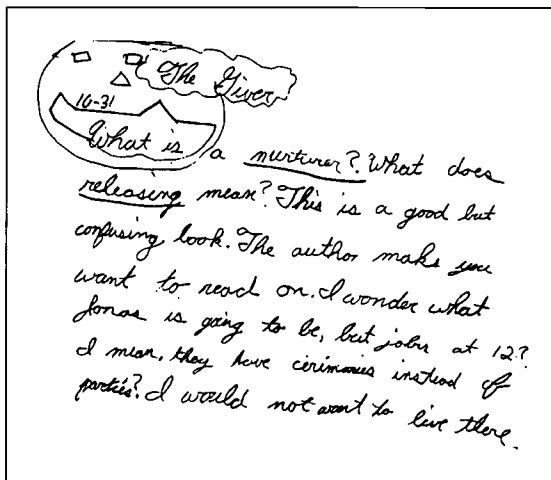 The Giver
10-31
What is a nurturer? What does
releasing mean? This is a good but
confusing book. The author maks you
want to read on. I wonder what
Jonas is going to be, but jobs at 12?
I mean, they have cerimonies instead of
parties? I would not want to live there.